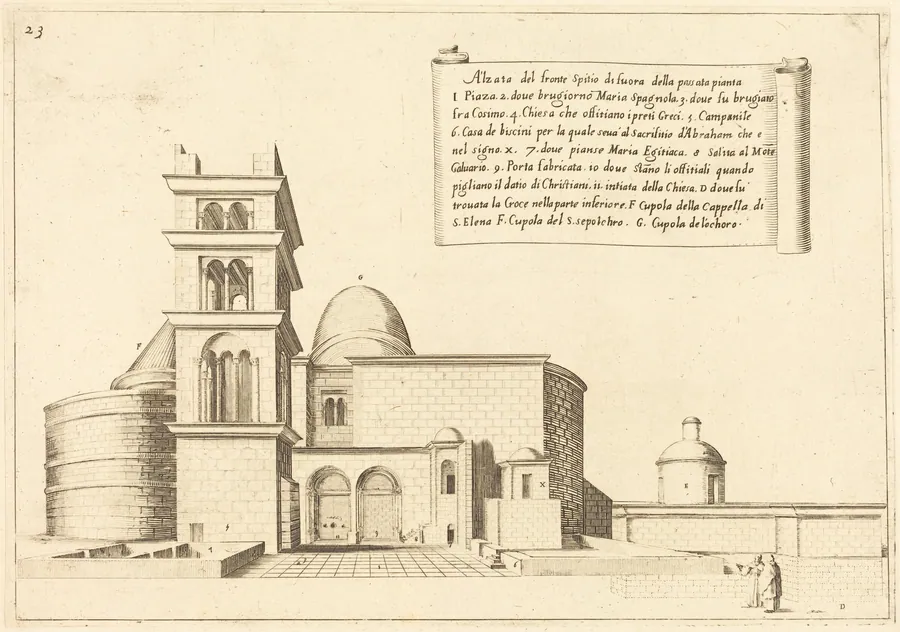 23
Alzata del fronte Spitio di fuora della passata pianta
1 Piaza. 2. doue brugiornō Maria Spagnola. 3. doue fu brugiato
fra Cosimo. 4. Chiesa che offitiano i preti Greci. 5. Campanile
6. Casa de biscini per la quale seua al Sacrifitio d'Abraham che e
nel signo. x. 7. doue pianse Maria Egitiaca. 8 Salita al Mōte
Caluario. 9. Porta fabricata. 10 doue stāno li offitiali quando
pigliano il datio di Christiani. 11. intiata della Chiesa. D doue fu
trouata la Croce nella parte inferiore. F Cupola della Cappella di
S. Elena F. Cupola del S. sepolchro. G. Cupola de lochoro.
G
F
X
E
D